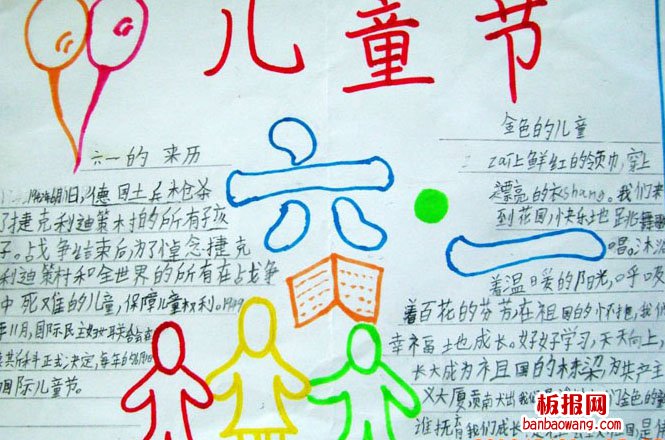 儿童节
六·一
六一的 来历
德国士兵枪杀
了捷克利迪策木村的所有子孩
子。占战争结束后,为了悼念捷克
利迪策村和全世界的所有在占战争
中死难的儿童,保障儿童权利。1949
年11月,国际民主妇女联合会在
正式决定,每年的6月1日
国际儿童节。
金色的儿童
zai上鲜红的领巾,穿上
漂亮的衣shang。我们来
到花园,快乐地跳舞
唱。沐浴
着温暖的阳光,呼吸
着百花的芬芳,在祖国的怀抱,我们
幸福地成长。好好学习,天天向上,
长大成为祖国的栋梁,为共产主
义大厦
我们成长
板报网
banbaowang.com